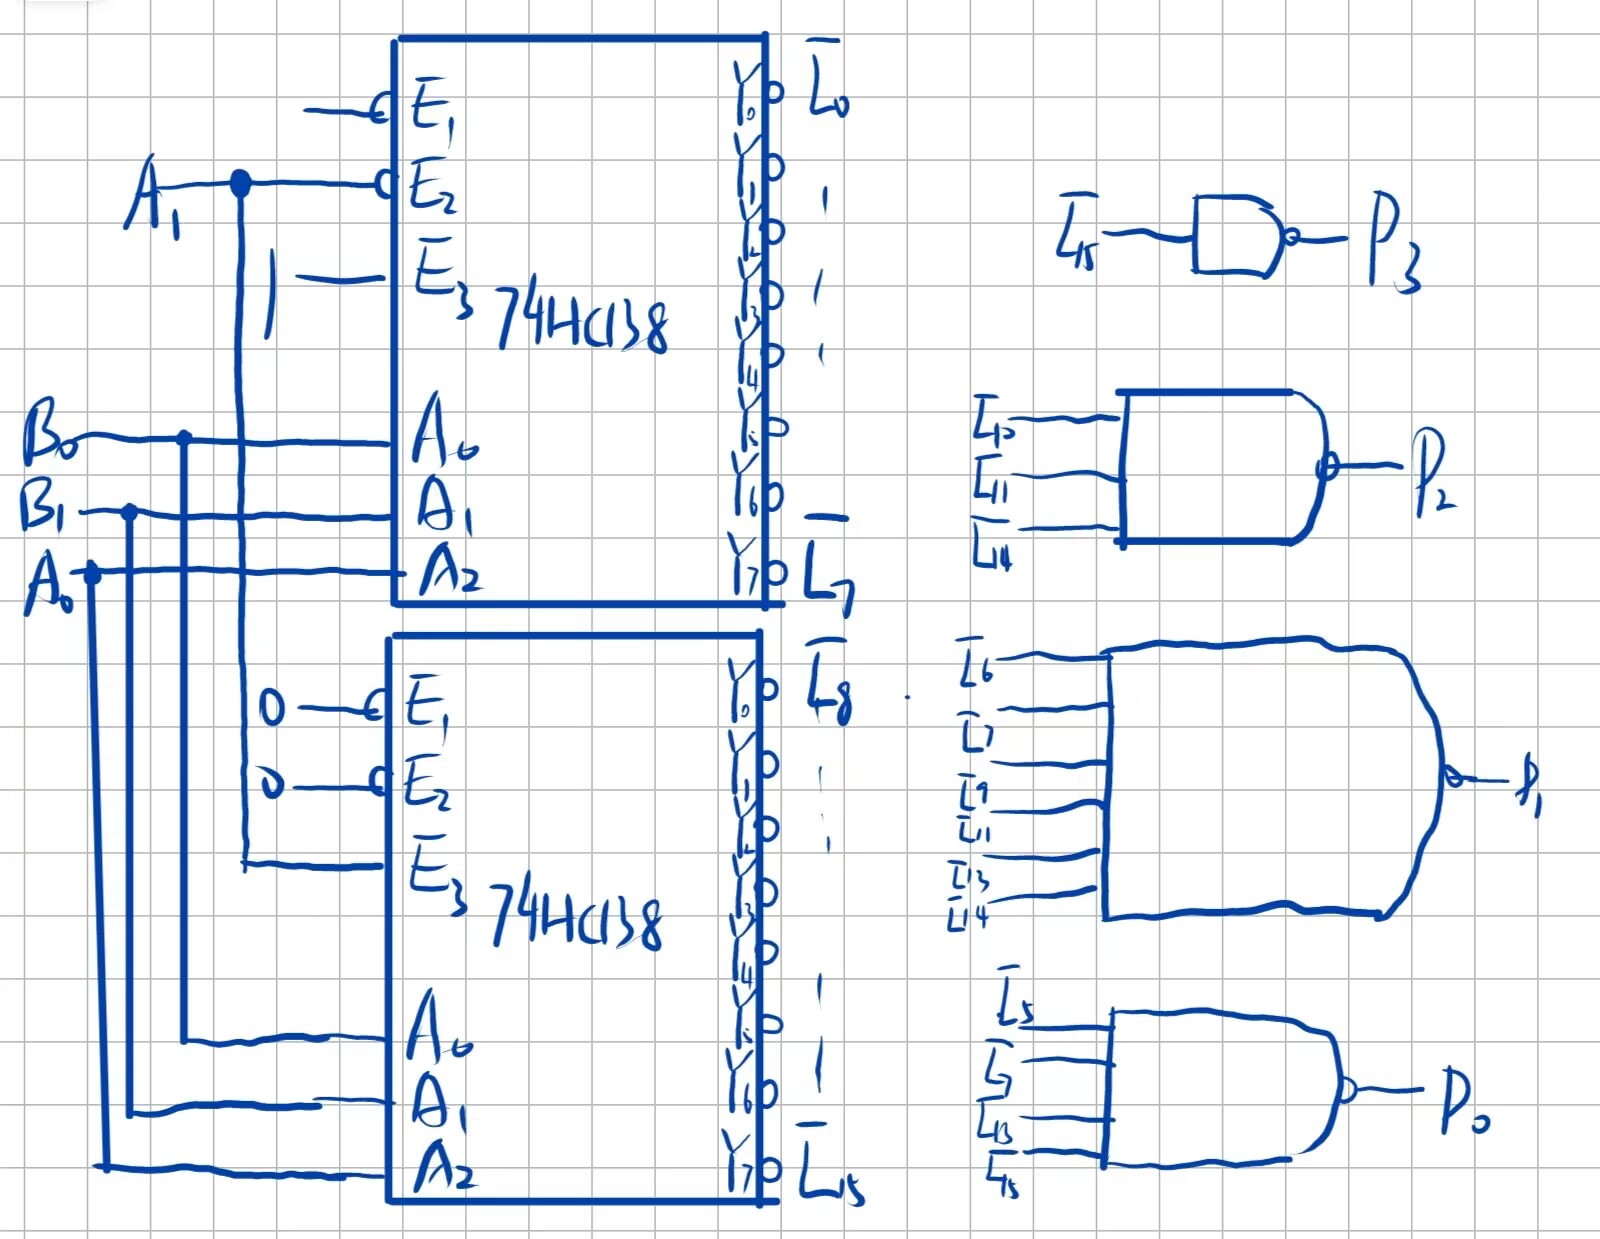 E1
A1 E2
1 E3
74HC138
B0 A0
B1 A1
A0 A2
Y0 L̅0
Y1
Y2
Y3
Y4
Y5
Y6
Y7 L̅7
0 E1
0 E2
E3
74HC138
A0
A1
A2
Y0 L̅8
Y1
Y2
Y3
Y4
Y5
Y6
Y7 L̅15
L̅15 P3
L̅11
L̅14
P2
L̅6
L̅7
L̅9
L̅11
L̅13
L̅14
P1
L̅5
L̅7
L̅13
L̅15
P0